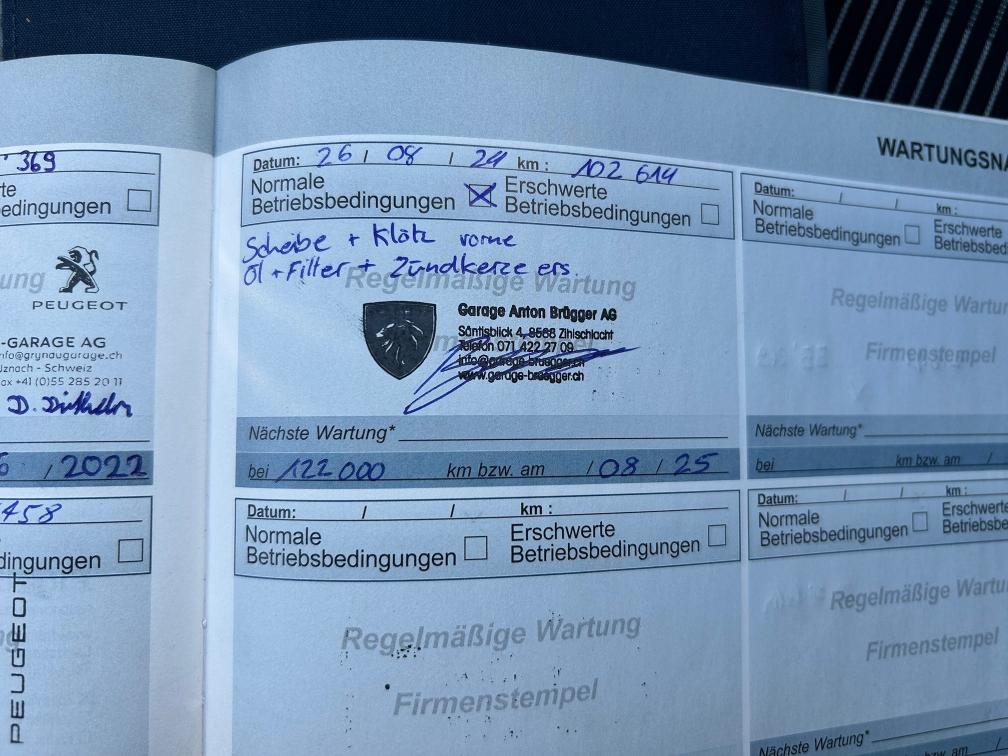 369
edingungen
PEUGEOT
-GARAGE AG
nfo@grynaugarage.ch
Uznach - Schweiz
ax +41 (0)55 285 20 11
/ 2022
458
dingungen
PEUGEOT
WARTUNGSNA
Datum: 26 / 08 / 24 km : 102 614
Normale
Betriebsbedingungen
Erschwerte
Betriebsbedingungen
Scheibe + Klötz vorne
Öl + Filter + Zündkerze ers.
Regelmäßige Wartung
Garage Anton Brügger AG
Säntisblick 4, 8588 Zihlschlacht
Telefon 071 422 27 09
info@garage-bruegger.ch
www.garage-bruegger.ch
Nächste Wartung*
bei 122 000 km bzw. am / 08 / 25
Datum: / / km :
Normale
Betriebsbedingungen
Erschwerte
Betriebsbedingungen
Regelmäßige Wartung
Firmenstempel
Datum: / / km :
Normale
Betriebsbedingungen
Erschwerte
Betriebsbed
Regelmäßige Wartun
Firmenstempel
Nächste Wartung*
bei km bzw. am /
Datum: / / km :
Normale
Betriebsbedingungen
Erschwerte
Betriebsbe
Regelmäßige Wart
Firmenstempel
Nächste Wartung*